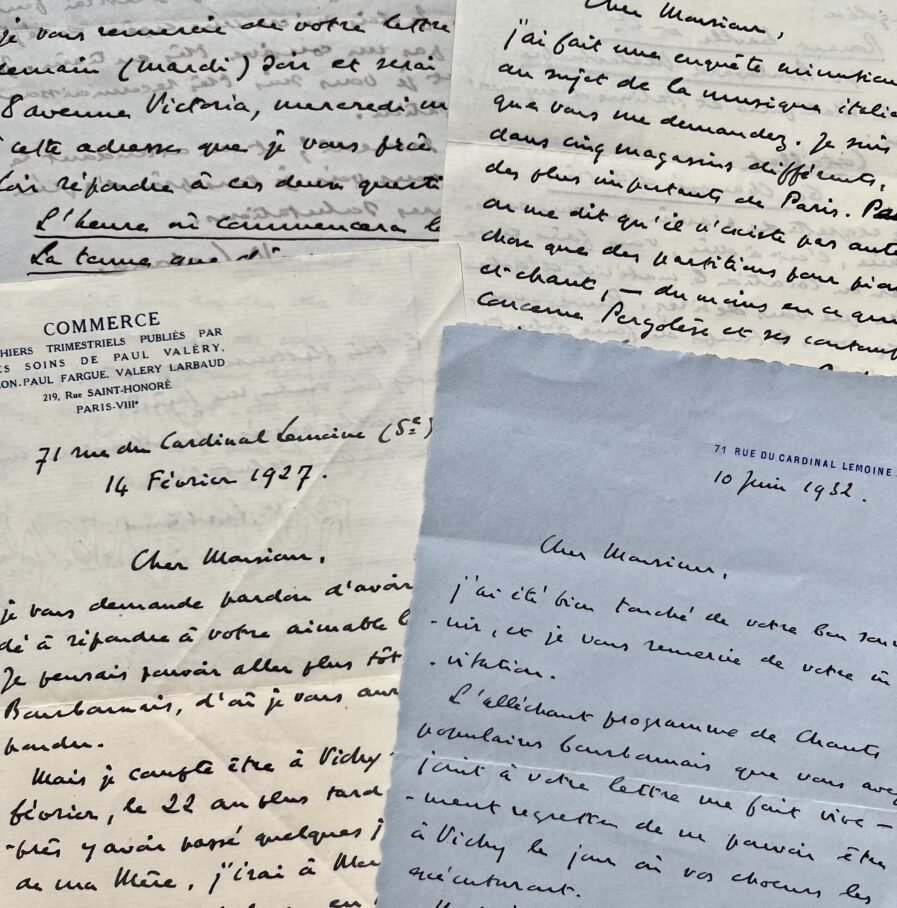 je vous remercie de votre lettre
demain (mardi) soir et serai
8 avenue Victoria, mercredi
à cette adresse que je vous prie
répondre à ces deux questi
L'heure où commencera l
La tenue que
Cher Monsieur,
j'ai fait une enquête minutieus
au sujet de la musique itali
que vous me demandez. Je suis
dans cinq magasins différents,
des plus importants de Paris.
on me dit qu'il n'existe pas autr
chose que des partitions pour pian
et chant, — du moins en ce qui
concerne Pergolèse et ses contemp
COMMERCE
HIERS TRIMESTRIELS PUBLIÉS PAR
ES SOINS DE PAUL VALÉRY,
ON-PAUL FARGUE, VALERY LARBAUD
219, Rue SAINT-HONORÉ
PARIS-VIIIe
71 rue du Cardinal Lemoine (5e)
14 Février 1927.
Cher Monsieur,
je vous demande pardon d'avoir
dé à répondre à votre aimable l
Je pensais pouvoir aller plus tôt
Bourbonnais, d'où je vous aur
pondu.
Mais je compte être à Vichy
février, le 22 au plus tard
-près y avoir passé quelques j
de ma Mère, j'irai à
en
71 RUE DU CARDINAL LEMOINE
10 Juin 1932.
Cher Monsieur,
j'ai été bien touché de votre bon souv
-nir, et je vous remercie de votre in
-vitation.
L'alléchant programme de Chants
populaires bourbonnais que vous avez
joint à votre lettre me fait vive-
-ment regretter de ne pouvoir être
à Vichy le jour où vos choeurs les
exécuteront.